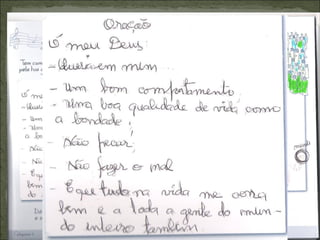 Oração
Ó meu Deus:
- Queira em mim...
- Um bom comportamento
- Uma boa qualidade de vida como
a bondade;
- Não pecar;
- Não fazer o mal
- E que tudo na vida me corra
bem e a toda a gente do mun-
do inteiro também.